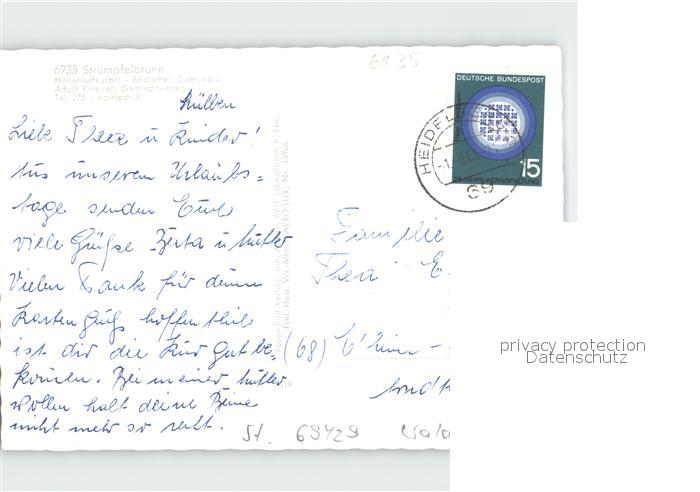 6935 Strümpfelbrunn
Höhenluftkurort - Badischer Odenwald
Adolf Krieger, Gemischtwaren
Tel. 275 - Postfach 9
6935
DEUTSCHE BUNDESPOST
15
25 JAHRE KERNSPALTUNG
HEIDEL
69
Liebe Thea u Kinder!
Aus unseren Urlaubs=
tage senden Euch
viele Grüße Berta u Mutter
Vielen Dank für deinen
Kartengruß hoffentlich
ist dir die Kur gut be=
kommen. Bei meiner Mutter
wollen halt deine Beine
nicht mehr so recht.
Familie
Thea E
(68)
St. 69429
privacy protection
Datenschutz